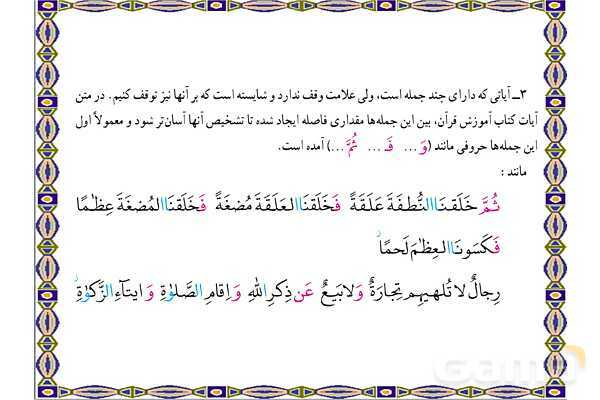 ۳ــ آیاتی که دارای چند جمله است، ولی علامت وقف ندارد و شایسته است که بر آنها نیز توقف کنیم. در متن
آیات کتاب آموزش قرآن، بین این جمله‌ها مقداری فاصله ایجاد شده تا تشخیص آنها آسان‌تر شود و معمولاً اول
این جمله‌ها حروفی مانند (وَ ... فَـ ... ثُمَّ ...) آمده است.
مانند :
ثُمَّ خَلَقنَا النُّطفَةَ عَلَقَةً فَخَلَقنَا العَلَقَةَ مُضغَةً فَخَلَقنَا المُضغَةَ عِظٰمًا
فَكَسَونَا العِظٰمَ لَحمًا
رِجالٌ لا تُلهيهِم تِجارَةٌ وَ لا بَيعٌ عَن ذِكرِ اللّٰهِ وَ اِقامِ الصَّلوٰةِ وَ ايتآءِ الزَّكوٰةِ
Gama